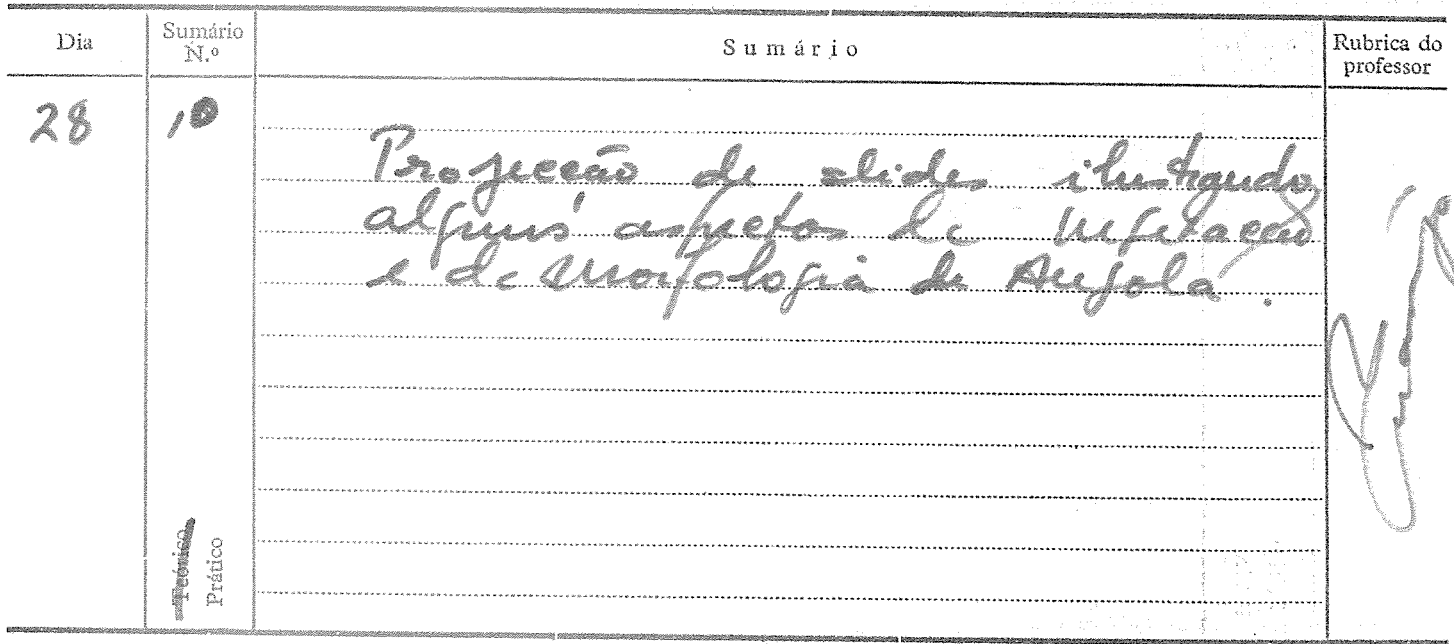 Dia Sumário N.º Sumário Rubrica do professor
28 10
Projecção de slides ilustrando
alguns aspetos da vegetação
e da morfologia de Angola.
Teórico
Prático